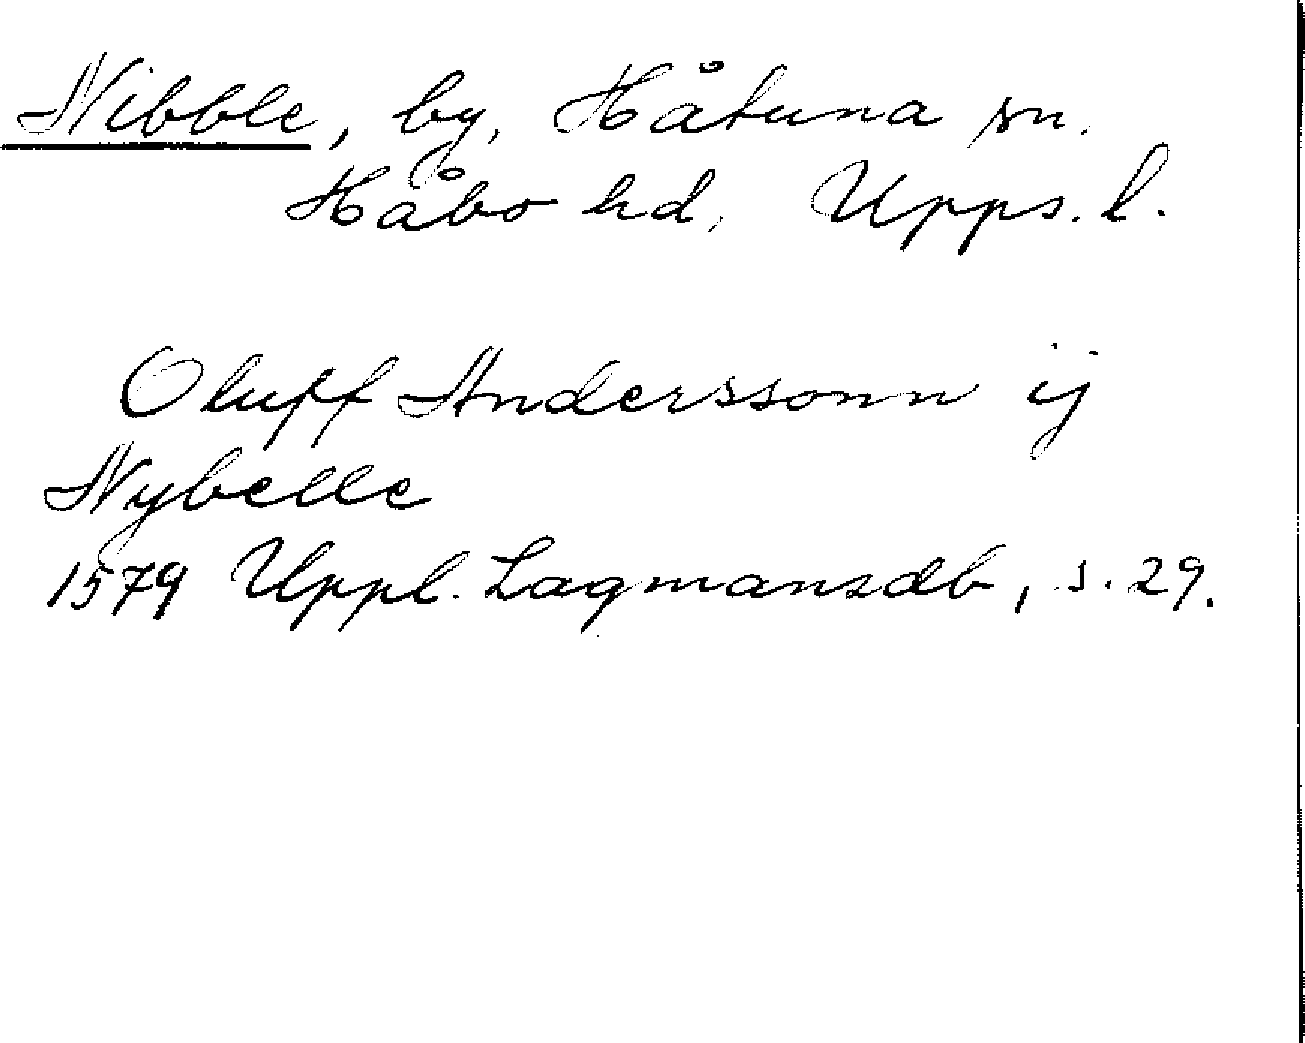 Nibble, by, Håtuna sn.
Håbo hd, Upps. l.
Oluff Anderssonn ij
Nybelle
1579 Uppl. Lagmansdb, s. 29.